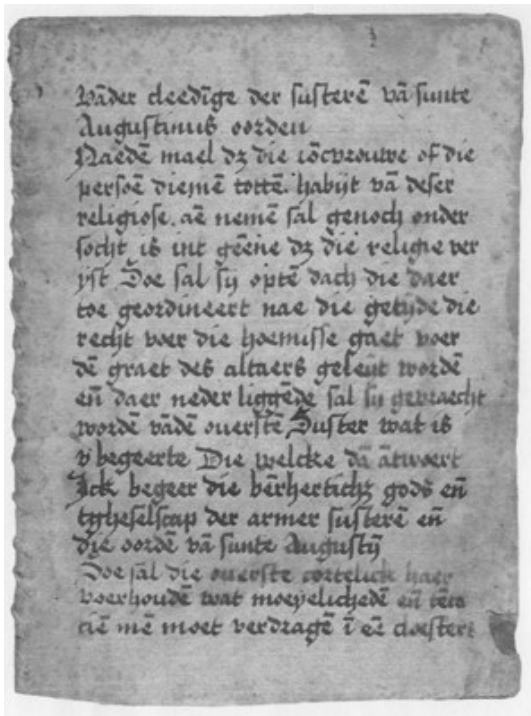 Vāder cleedīge der susterē vā sunte
Augustinus oorden
Naedē mael dz die iōcvrouwe of die
persoē diemē tottē habijt vā deser
religiose. aē nemē sal genoch onder
socht is int geēne dz die religie ver
yst Doe sal sij optē dach die daer
toe geordineert nae die getijde die
recht voer die hoemisse gaet voer
dē graet des altaers geleijt wordē
eñ daer neder liggēde sal sij gevraecht
wordē vādē overstē Suster wat is
v begeerte Die welcke dā ātwoert
Ick begeer die bērhertichz gods eñ
tgheselscap der armer susterē eñ
die oordē vā sunte Augustij
Doe sal die overste cortelick haer
voerhoudē wat moeyelichedē eñ tēta
ciē mē moet verdragē ī eē cloesters